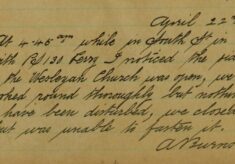 April 22
At 4-45 am while in South St in
with PC 130 Kerr I noticed the
the Wesleyan Church was open, we
looked round thoroughly but nothing
have been disturbed, we closed
but was unable to fasten it.
A Burns